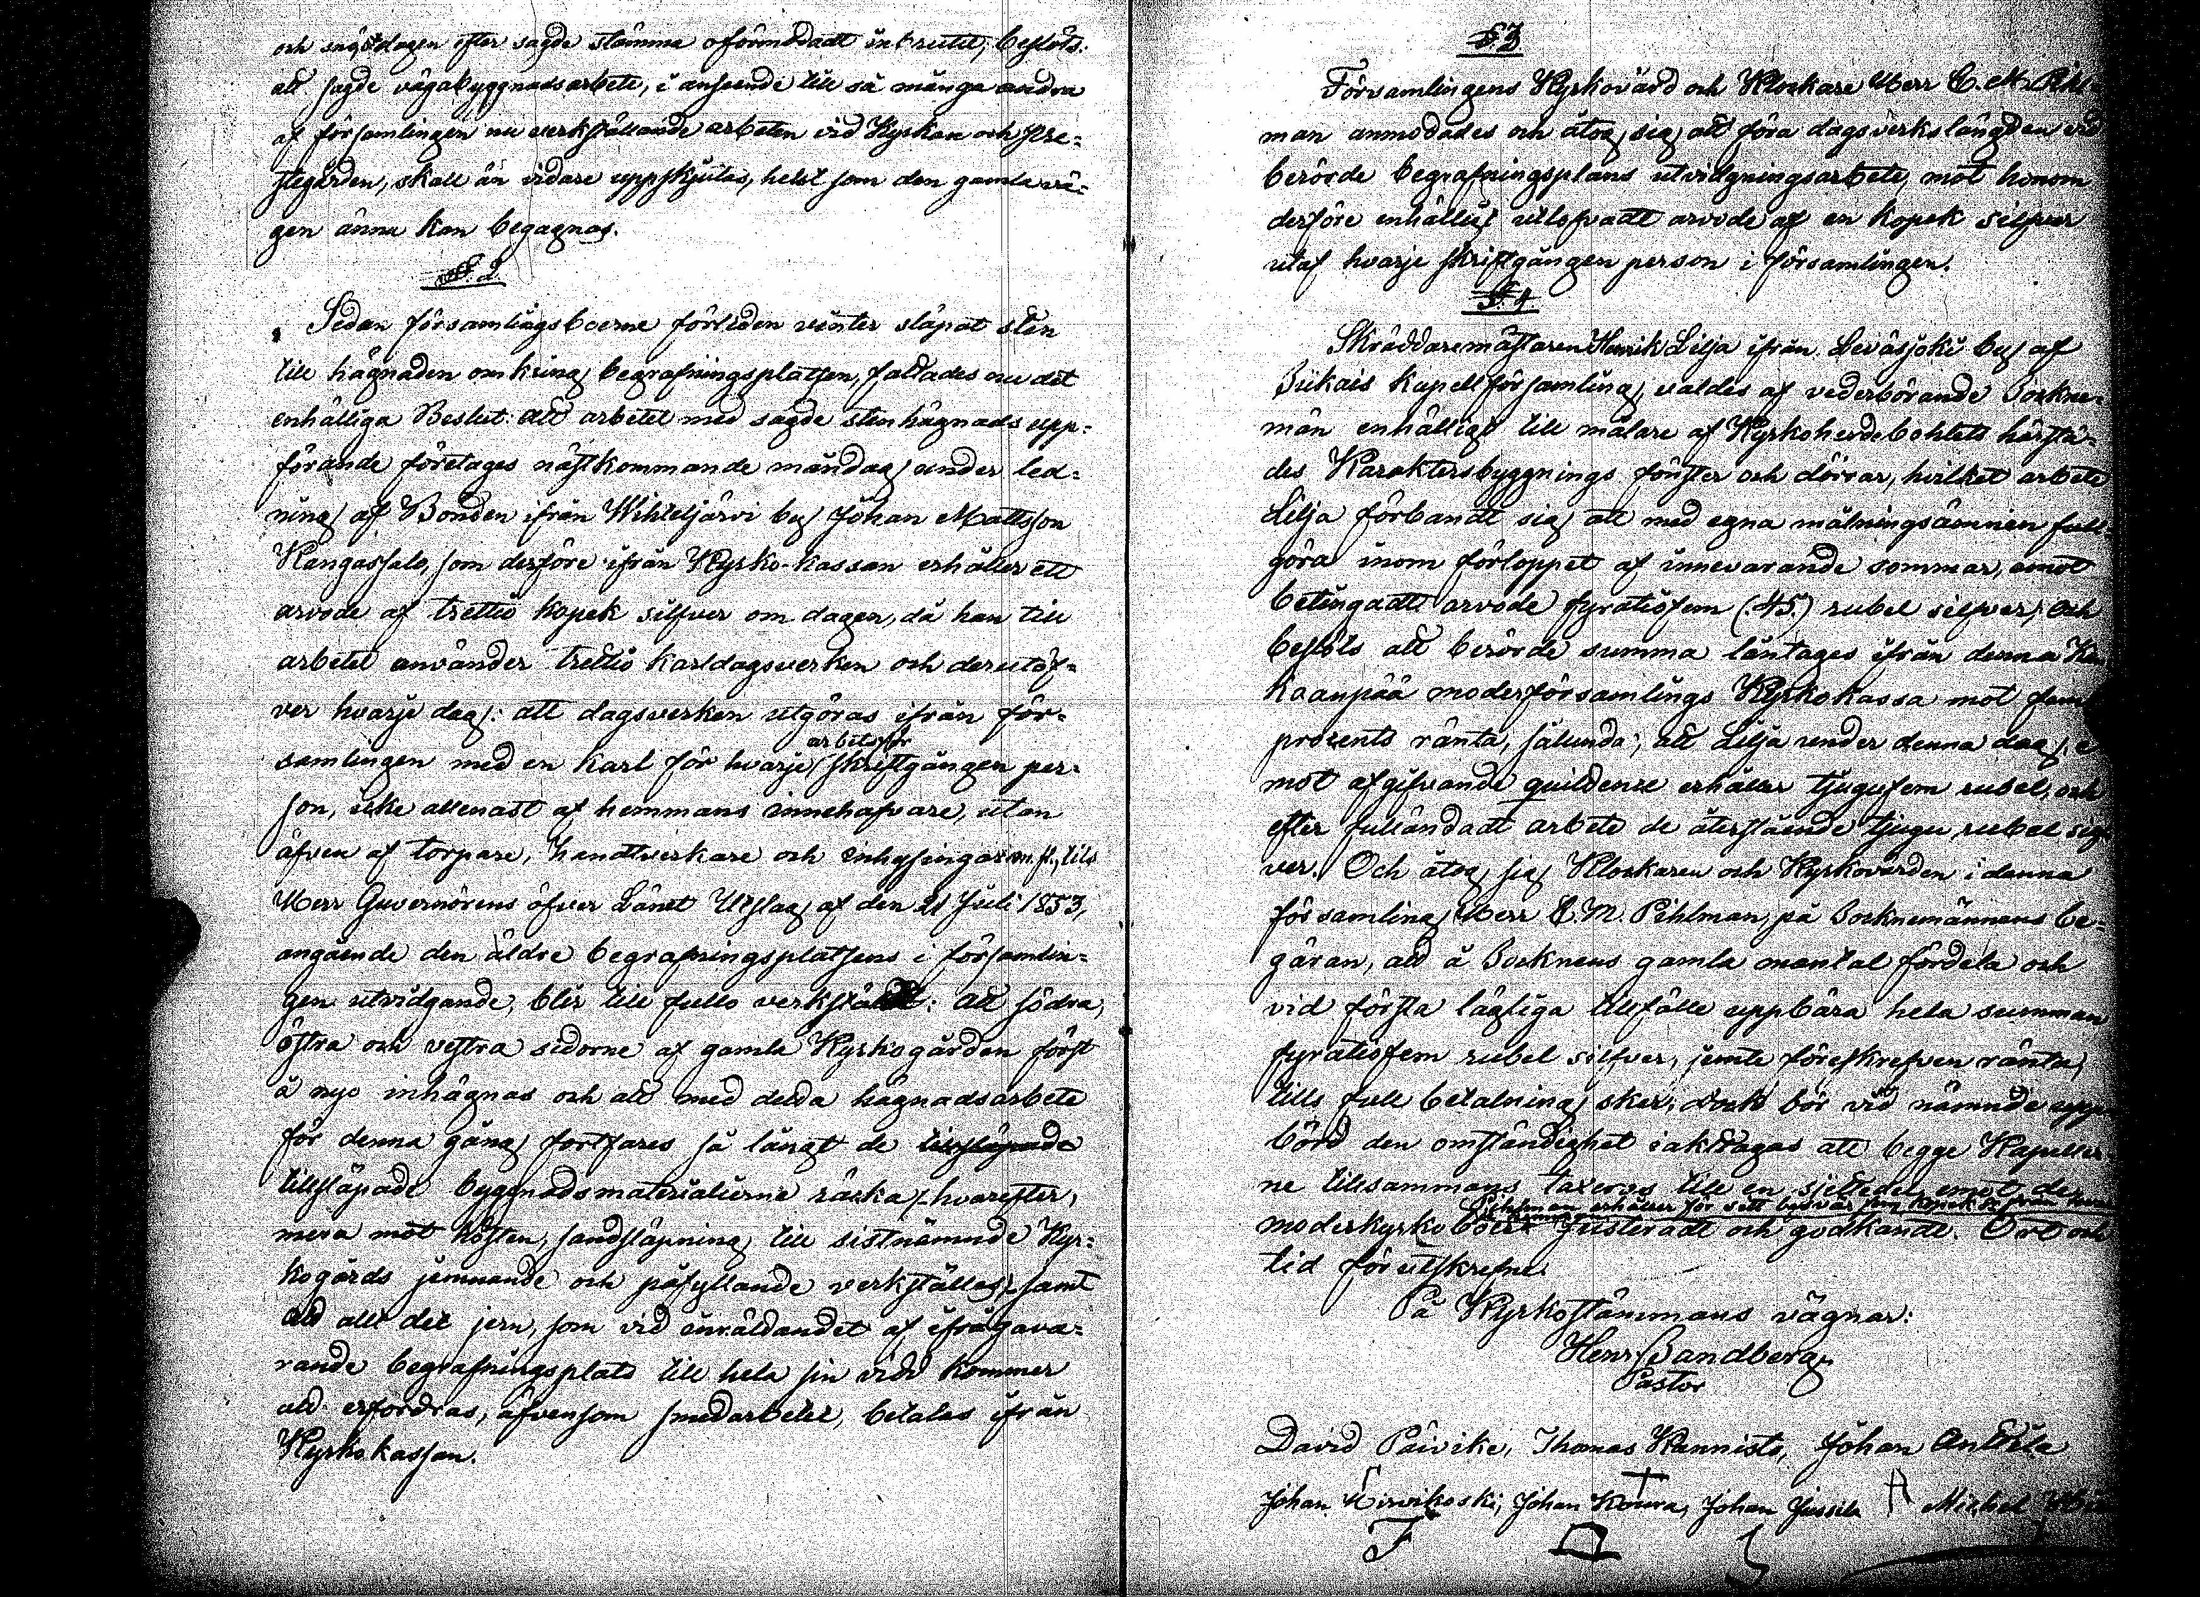 och sagde dagen efter sagde stämma oförmodadt inträtet, beslöts:
att sagde vägabyggnadsarbete, i anseende till så många andra
af församlingen nu verkställande arbeten vid Kyrkan och Pre-
stegården, skall än vidare uppskjutas, helst som den gamla vä-
gen ännu kan begagnas.
§. 2
Sedan församlingsboerne förliden vinter släpat sten
till hägnaden omkring begrafningsplatsen, fattades nu det
enhälliga Beslut: att arbetet med sagde stenhägnads upp-
förande företages nästkommande måndag under led-
ning af Bonden ifrån Wihteljärvi by Johan Mattsson
Kangassalo, som derföre ifrån Kyrko-kassan erhåller ett
arvode af trettio kopek silfver om dagen, då han till
arbetet använder trettio karldagsverken och derutöf-
ver hvarje dag: att dagsverken utgöras ifrån för-
arbetsför
samlingen med en karl för hvarje skriftgången per-
son, icke allenast af hemmans innehafvare, utan
äfven af torpare, handtverkare och inhysingar m. fl., tils
Herr Guvernörens öfver Länet Utslag af den 21 Juli 1853,
angående den äldre begrafningsplatsens i församlin-
gen utvidgande, blir till fullo verkstäldt: att södra,
östra och vestra sidorne af gamla Kyrkogården först
å nyo inhägnas och att med detta hägnadsarbete
för denna gång fortfares så långt de tillsläpade
tillsläpade byggnadsmaterialierne räcka, hvarefter,
mera mot hösten, sandsläpning till sistnämnde Kyr-
kogårds jemnande och påfyllande verkställes, samt
att allt det jern, som vid invåldandet af ifrågava-
rande begrafningsplats till hela sin vidd kommer
att erfordras, äfvensom smedarbetet, betalas ifrån
Kyrkokassan.
§ 3
Församlingens Kyrkovärd och Klockare Herr C. M. Pihl-
man anmodades och åtog sig att föra dagsverkslängden vid
berörde begrafningsplans utvidgningsarbete, mot honom
derföre enhälligt utlofvadt arvode af en kopek silfver
utaf hvarje skriftgången person i församlingen.
§. 4
Skräddaremästaren Henrik Lilja ifrån Leväsjoki by af
Siikais Kapellförsamling, valdes af vederbörande Sockne-
män enhälligt till målare af Kyrkoherdebohlets härstä-
des Karaktersbyggnings fönster och dörrar, hvilket arbete
Lilja förbandt sig att med egna målningsämnen full-
göra inom förloppet af innevarande sommar, emot
betingadt arvode fyratiofem (45) rubel silfver; och
beslöts att berörde summa låntages ifrån denna
Kaanpää moderförsamlings Kyrkokassa mot fem
procents ränta, sålunda, att Lilja under denna dag, e-
mot afgifvande quittence erhåller tjugufem rubel, och
efter fulländadt arbete de återstående tjugu rubel sil-
ver. Och åtog sig Klockaren och Kyrkovärden i denna
församling Herr C. M. Pihlman, på Socknemännens be-
gäran, att å Socknens gamla mantal fördela och
vid första lägliga tillfälle uppbära hela summan
fyratiofem rubel silfver, jemte föreskrefven ränta,
tills full betalning sker; dock bör vid nämnde upp-
börd den omständighet iakttagas att begge Kapeller-
ne tillsammans taxeras till en sjettedel emot de
Pihlman erhåller för sitt besvär fem kopek Sr
moderkyrkoboer. Justeradt och godkändt. Ort och
tid förutskrefne.
På Kyrkostämmans vägnar:
Henr. Sandberg
Pastor
David Päivike, Thomas Kannisto, Johan Anttila
Johan Hirvikoski, Johan Koura, Johan Jussila Michel